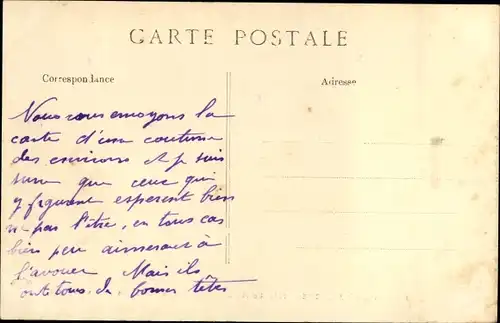 CARTE POSTALE
Correspondance
Adresse
Nous vous envoyons la
carte d'une coutume
des environs et je suis
sure que ceux qui
y figurent esperent bien
ne pas l'être, en tous cas
bien peu aimeraient à
l'avouer Mais ils
ont tous de bonnes têtes